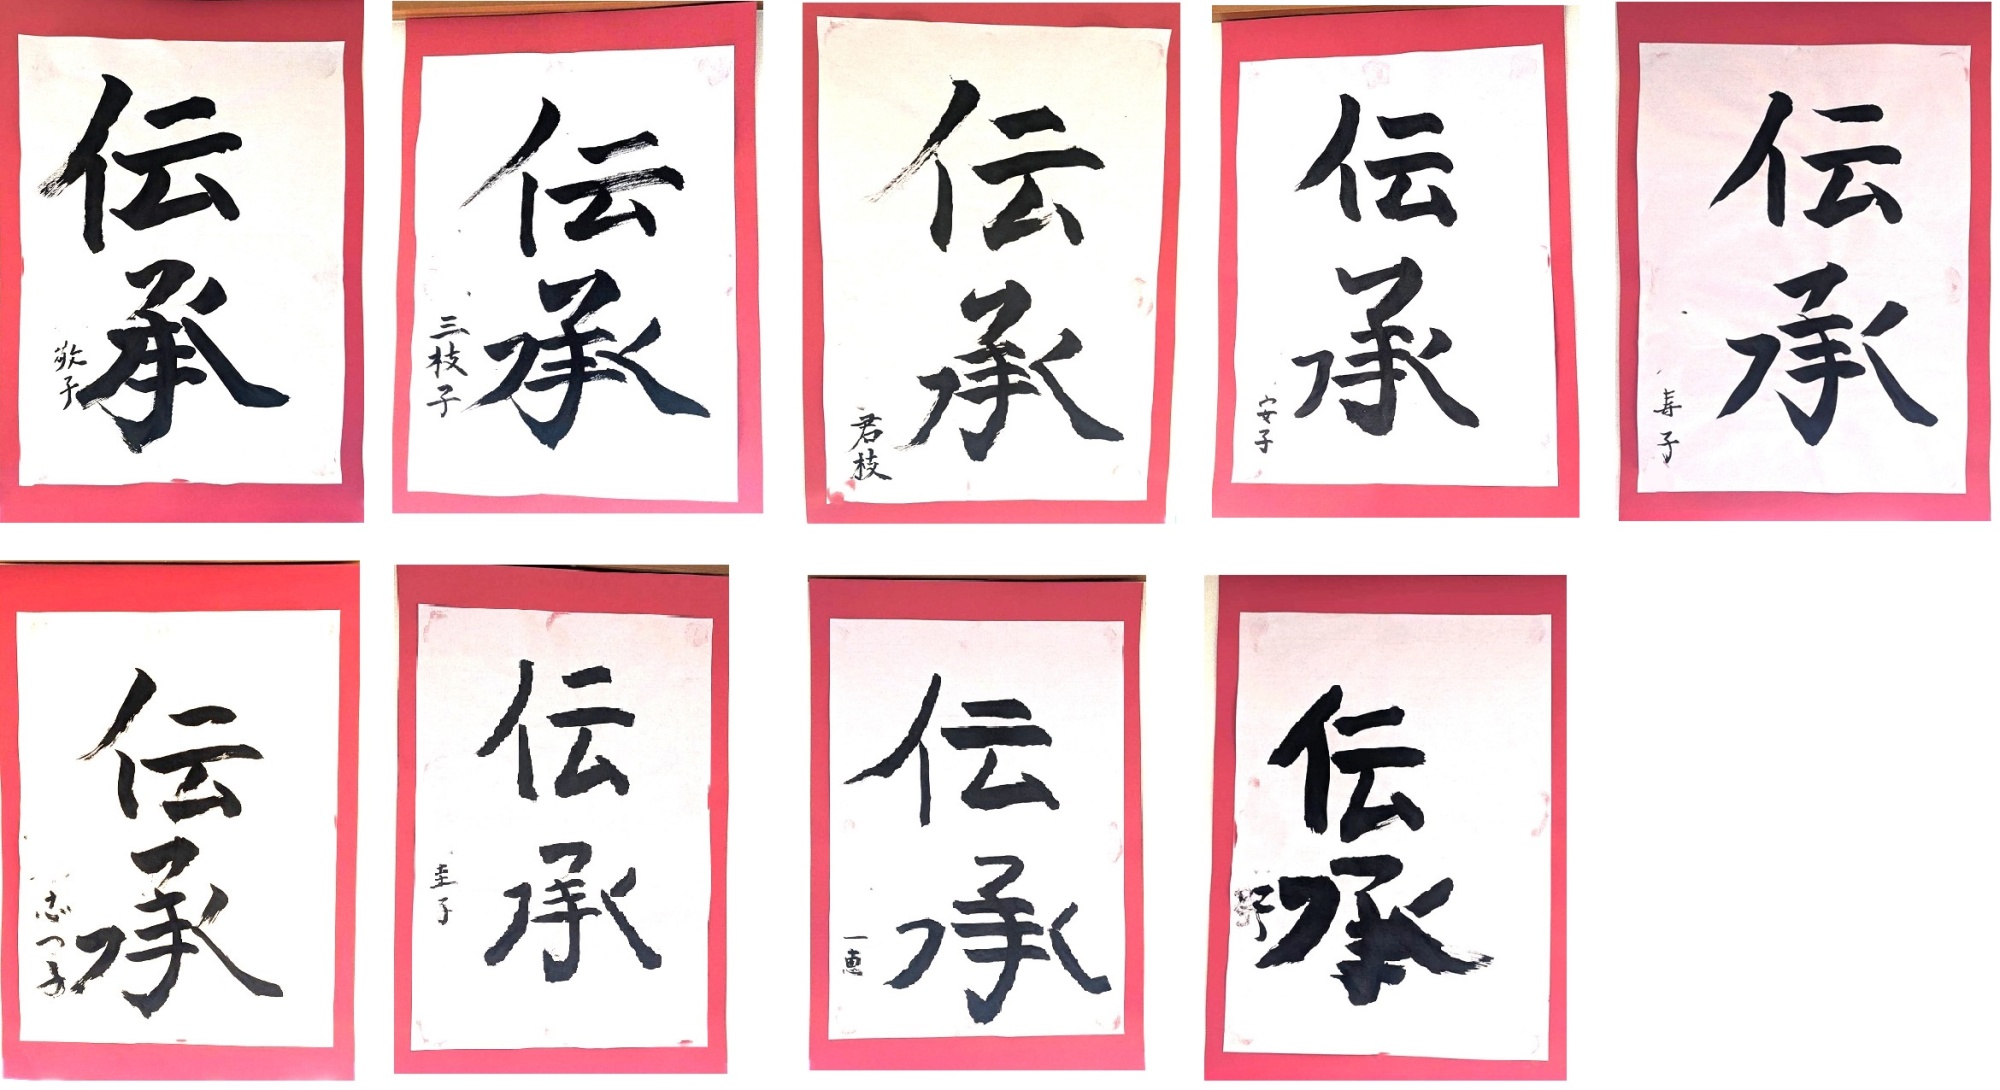 伝承
敬子
伝承
三枝子
伝承
君枝
伝承
安子
伝承
寿子
伝承
志つ子
伝承
圭子
伝承
一恵
伝承